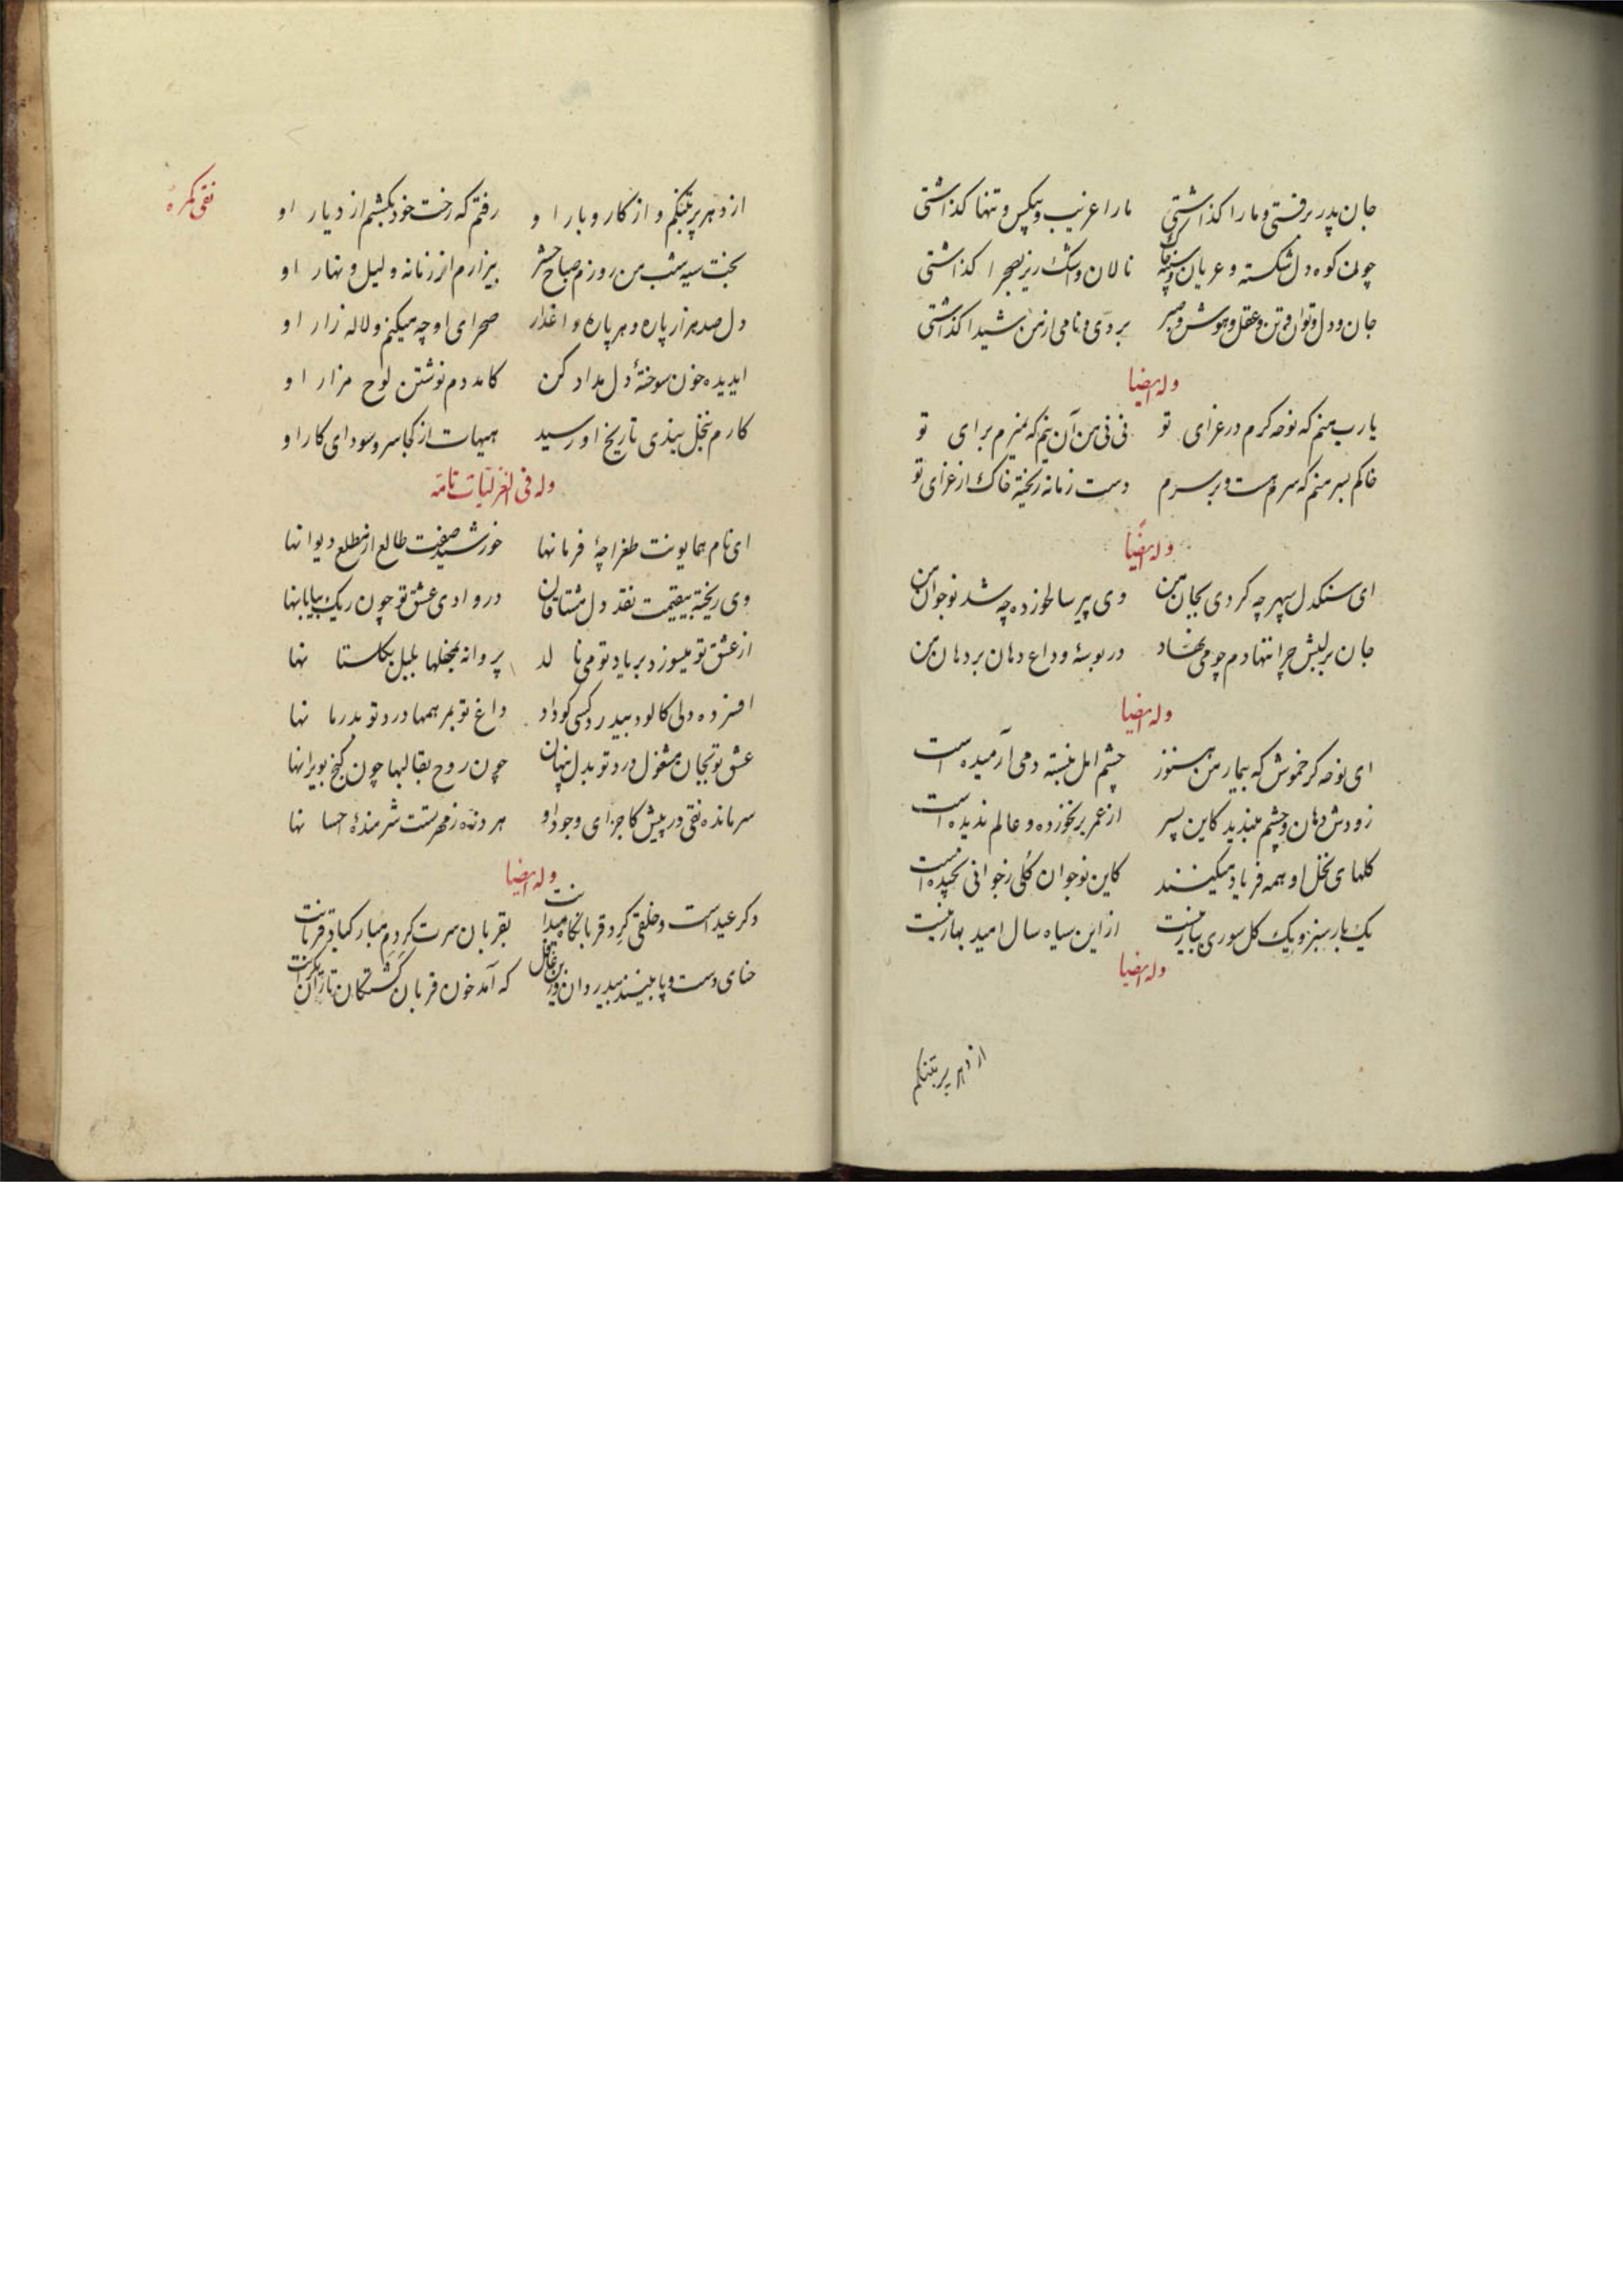 جان پدر برفتی و ما را کذاشتی ما را غریب و بیکس و تنها کذاشتی
چون کوه دل شکسته و عریان و سینه چاک نالان و اشک ریز بصحرا کذاشتی
جان و دل و توان و تن و عقل و هوش و صبر بردی و نامی از من شیدا کذاشتی
وله ایضا
یا رب منم که نوحه کرم در عزای تو نی نی من آن نیم که نمیرم برای تو
خاکم بسر منم که سرم هست و بر سرم دست زمانه ریخته خاک از عزای تو
وله ایضا
ای سنکدل سپهر چه کردی بجان من وی پیر سالخورده چه شد نوجوان من
جان بر لبش چرا ننهادم چو می نهاد در بوسهٔ وداع دهان بر دهان من
وله ایضا
ای نوحه کر خموش که بیمار من هنوز چشم امل نبسته دمی آرمیده است
زودش دهان و چشم مبندید کاین پسر از عمر بر نخورده و عالم ندیده است
کلهای نخل او همه فریاد میکنند کاین نوجوان کلی ز جوانی نچیده است
یک بار سبز و یک کل سوری ببار نیست از این سیاه سال امید بهار نیست
وله ایضا
از دهر پر بتنکم
نقی کمره
از دهر پر بتنکم و از کار و بار او رفتم که رخت خود بکشم از دیار او
بخت سیه شب من روزم صباح حشر بیزارم از زمانه و لیل و نهار او
دل صد هزار پاره و هر پاره داغدار صحرای او چه میکنم و لاله زار او
ایدیده خون سوختهٔ دل مداد کن کامد دم نوشتن لوح مزار او
کارم بنخل بندی تاریخ او رسید هیهات از کجا سر و سودای کار او
وله فی الغزلیات تامه
ای نام همایونت طغراچهٔ فرمانها خورشید صفت طالع از مطلع دیوانها
وی ریخته بیقیمت نقد دل مشتاقان در وادی عشق تو چون ریک بیابانها
از عشق تو میسوزد بر یاد تو می نالد پروانه بمحفلها بلبل بکلستانها
افسرده دلی کالود بیدرد کسی کو داد داغ تو بمرهمها درد تو بدرمانها
عشق تو بجان مشغول درد تو بدل پنهان چون روح بقالبها چون کنج بویرانها
سر مانده نقی در پیش کاجزای وجود او هر ذره ز مهرست شرمندهٔ احسانها
وله ایضا
دکر عیداست و خلقی کرد قربانکاه میدانت بقربان سرت کردم مبارکباد قربانت
حنای دست و پا بینند بیدردان و زین غافل که آمد خون قربان کشتکان